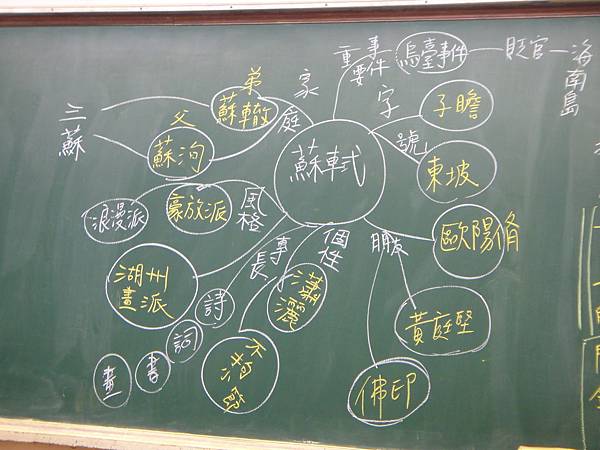 重要事件
烏臺事件
貶官
海南島
家庭
弟
蘇轍
父
蘇洵
三蘇
字
子瞻
號
東坡
蘇軾
風格
豪放派
浪漫派
歐陽脩
朋友
黃庭堅
佛印
個性
瀟灑
專長
湖州
畫派
詩
詞
書
畫